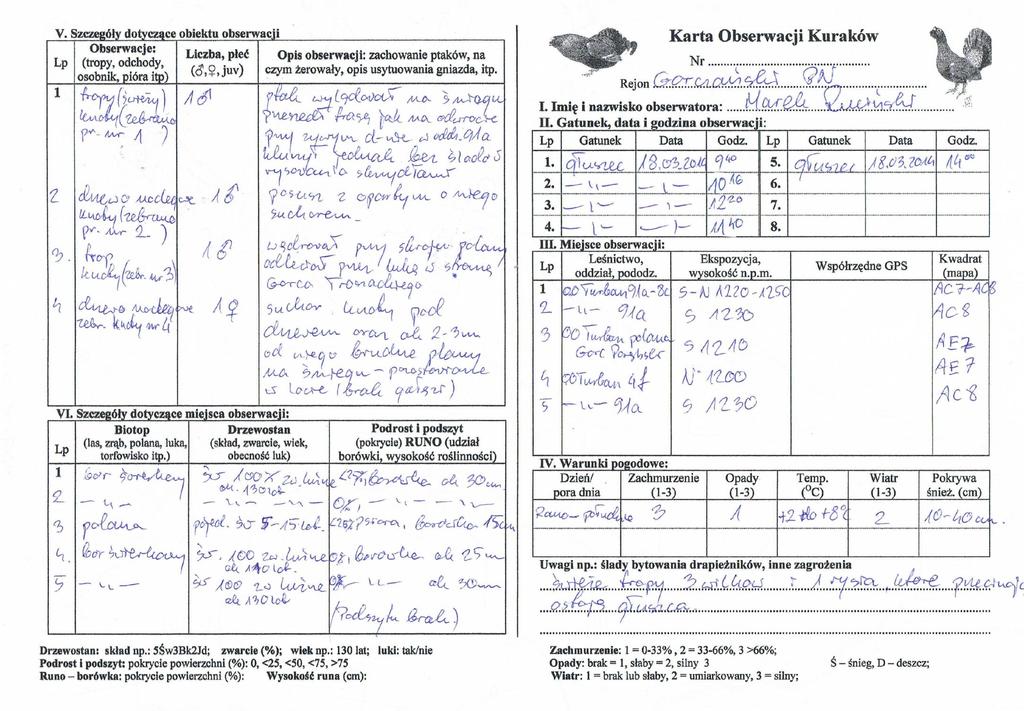 V. Szczegóły dotyczące obiektu obserwacji
Lp
Obserwacje:
(tropy, odchody,
osobnik, pióra itp)
Liczba, płeć
(♂,♀, juv)
Opis obserwacji: zachowanie ptaków, na
czym żerowały, opis usytuowania gniazda, itp.
1
tropy (świeży)
knoby (zebrano
pr. nr 1 )
1♂
ptak wylądował na śniegu
przeszedł trasę jak na odwrocie
przy żywym d-wie w oddz. 91a
jednak bez śladów
rysowania skrzydłami
2
drzewo noclegowe
knoby (zebrano
pr. nr 2 )
1♂
posusz z opartym o niego
suchorem
3.
trop
knoby (zebr. nr 3)
1♂
wędrował przy skraju polany
odleciał przez łukę w stronę
Gorca Troszackiego
4
drzewo noclegowe
zebr. knoby nr 4
1♀
suchar. knoby pod
drzewem oraz ok 2-3m
od niego brudne plamy
na śniegu -
(brak gałęzi)
VI. Szczegóły dotyczące miejsca obserwacji:
Lp
Biotop
(las, zrąb, polana, łuka,
torfowisko itp.)
Drzewostan
(skład, zwarcie, wiek,
obecność luk)
Podrost i podszyt
(pokrycie) RUNO (udział
borówki, wysokość roślinności)
1
bór świerkowy
św 100% zw. luźne
ok. 130 lat
<25%, borówka ok 30 cm
2
- „ -
- „ - - „ - - „ -
0%, - „ - - „ -
3
polana
pojed. św 5-15 lat.
<25% borówka 15cm
4.
bór świerkowy
św. 100 zw. luźne
ok 140 lat.
borówka ok 25cm
5
- „ -
św 100 zw luźne
ok 130 lat
0% - „ - ok 30cm
(Podszytu brak.)
Drzewostan: skład np.: 5Św3Bk2Jd; zwarcie (%); wiek np.: 130 lat; luki: tak/nie
Podrost i podszyt: pokrycie powierzchni (%): 0, <25, <50, <75, >75
Runo – borówka: pokrycie powierzchni (%): Wysokość runa (cm):
Karta Obserwacji Kuraków
Nr
Rejon Gorczański PN
I. Imię i nazwisko obserwatora: Marek Ruciński
II. Gatunek, data i godzina obserwacji:
Lp Gatunek Data Godz. Lp Gatunek Data Godz.
1. głuszec 18.03.2014 9⁴⁰ 5. głuszec 18.03.2014 14⁰⁰
2. - „ - - „ - 10¹⁶ 6.
3. - „ - - „ - 12²⁰ 7.
4. - „ - - „ - 11⁴⁰ 8.
III. Miejsce obserwacji:
Lp
Leśnictwo,
oddział, pododz.
Ekspozycja,
wysokość n.p.m.
Współrzędne GPS
Kwadrat
(mapa)
1 OO Turban 91a-8c S-N 1220-1250 AC7-AC8
2 - „ - 91a S 1230 AC8
3 OO Turban polana
Gorc S 1210 AE7
4 OO Turban 4f N 1200 AE7
5 - „ - 91a S 1230 AC8
IV. Warunki pogodowe:
Dzień/
pora dnia
Zachmurzenie
(1-3)
Opady
(1-3)
Temp.
(°C)
Wiatr
(1-3)
Pokrywa
śnież. (cm)
Rano - południe 3 1 +2 do +8°C 2 10-40 cm.
Uwagi np.: ślady bytowania drapieżników, inne zagrożenia
świeże tropy 3 wilków i 1 rysia, które przecinają
ostoję głuszca
Zachmurzenie: 1 = 0-33% , 2 = 33-66%, 3 >66%;
Opady: brak = 1, słaby = 2, silny 3 Ś – śnieg, D – deszcz;
Wiatr: 1 = brak lub słaby, 2 = umiarkowany, 3 = silny;